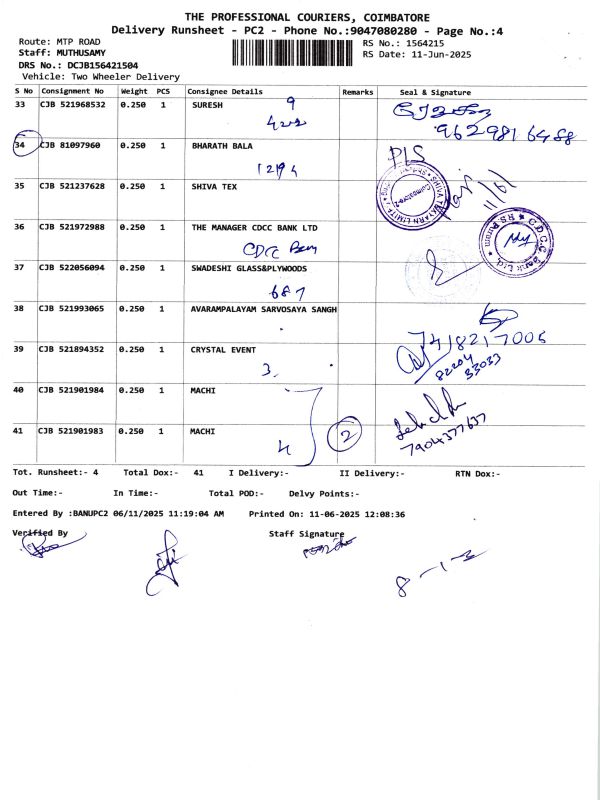 THE PROFESSIONAL COURIERS, COIMBATORE
Delivery Runsheet - PC2 - Phone No.:9047080280 - Page No.:4
Route: MTP ROAD RS No.: 1564215
Staff: MUTHUSAMY RS Date: 11-Jun-2025
DRS No.: DCJB156421504
Vehicle: Two Wheeler Delivery
S No Consignment No Weight PCS Consignee Details Remarks Seal & Signature
33 CJB 521968532 0.250 1 SURESH 9
9629816488
34 CJB 81097960 0.250 1 BHARATH BALA
1294
35 CJB 521237628 0.250 1 SHIVA TEX
11/61
36 CJB 521972988 0.250 1 THE MANAGER CDCC BANK LTD
CDCC Bank
C.D.C.C. Bank Ltd.
37 CJB 522056094 0.250 1 SWADESHI GLASS&PLYWOODS
687
38 CJB 521993065 0.250 1 AVARAMPALAYAM SARVOSAYA SANGH
7418217006
39 CJB 521894352 0.250 1 CRYSTAL EVENT
3.
82204
33033
40 CJB 521901984 0.250 1 MACHI
41 CJB 521901983 0.250 1 MACHI 2
4
7904377637
Tot. Runsheet:- 4 Total Dox:- 41 I Delivery:- II Delivery:- RTN Dox:-
Out Time:- In Time:- Total POD:- Delvy Points:-
Entered By :BANUPC2 06/11/2025 11:19:04 AM Printed On: 11-06-2025 12:08:36
Verified By Staff Signature
8-1-3